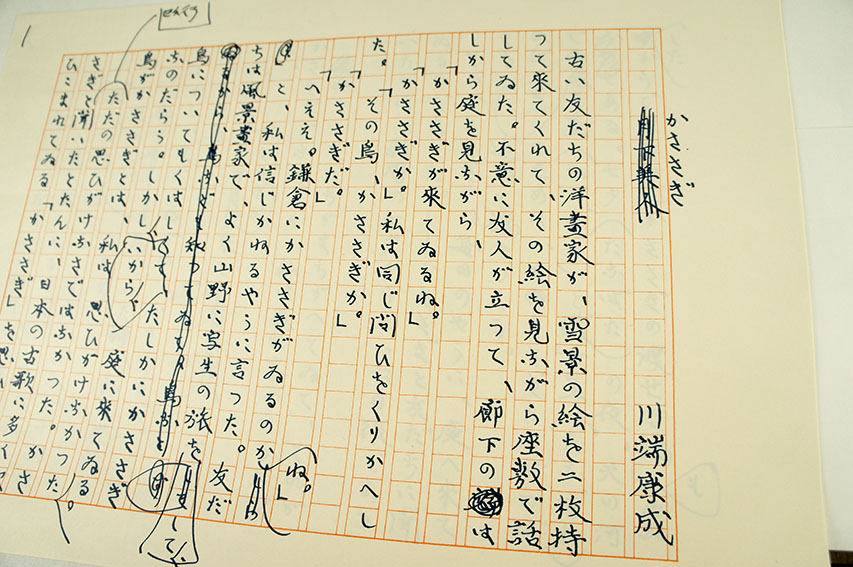 かささぎ
川端康成
古い友だちの洋畫家が、雪景の絵を二枚持
つて来てくれて、その絵を見ながら座敷で話
してゐた。不意に友人が立つて、廊下のは
しから庭を見ながら、
「かささぎが来てゐるね。」
「かささぎか。」私は同じ問ひをくりかへし
た。「その鳥、かささぎか。」
「かささぎだ。」
「へええ。鎌倉にかささぎがゐるのかね。」
と、私は信じかねるやうに言つた。友だ
ちは風景畫家で、よく山野に写生の旅をして
鳥についてもくはし たしかにかささぎ
なのだらう。しかし 庭に来てゐる
鳥がかささぎとは、私は思ひがけなかつた。
ただの思ひがけなさではなかつた。かさ
さぎと聞いたとたんに、日本の古歌に多く
ひこまれてゐる「かささぎ」を思